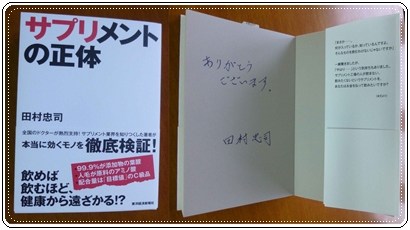 サプリメント
の正体
田村忠司
全国のドクターが熱烈支持!サプリメント業界を知りつくした著者が
本当に効くモノを徹底検証!
99.9%が添加物の葉酸
人毛が原料のアミノ酸
配合量は「目標値」のC級品
飲めば
飲むほど、
健康から遠ざかる!?
東洋経済新報社
ありがとう
ございます。
田村忠司